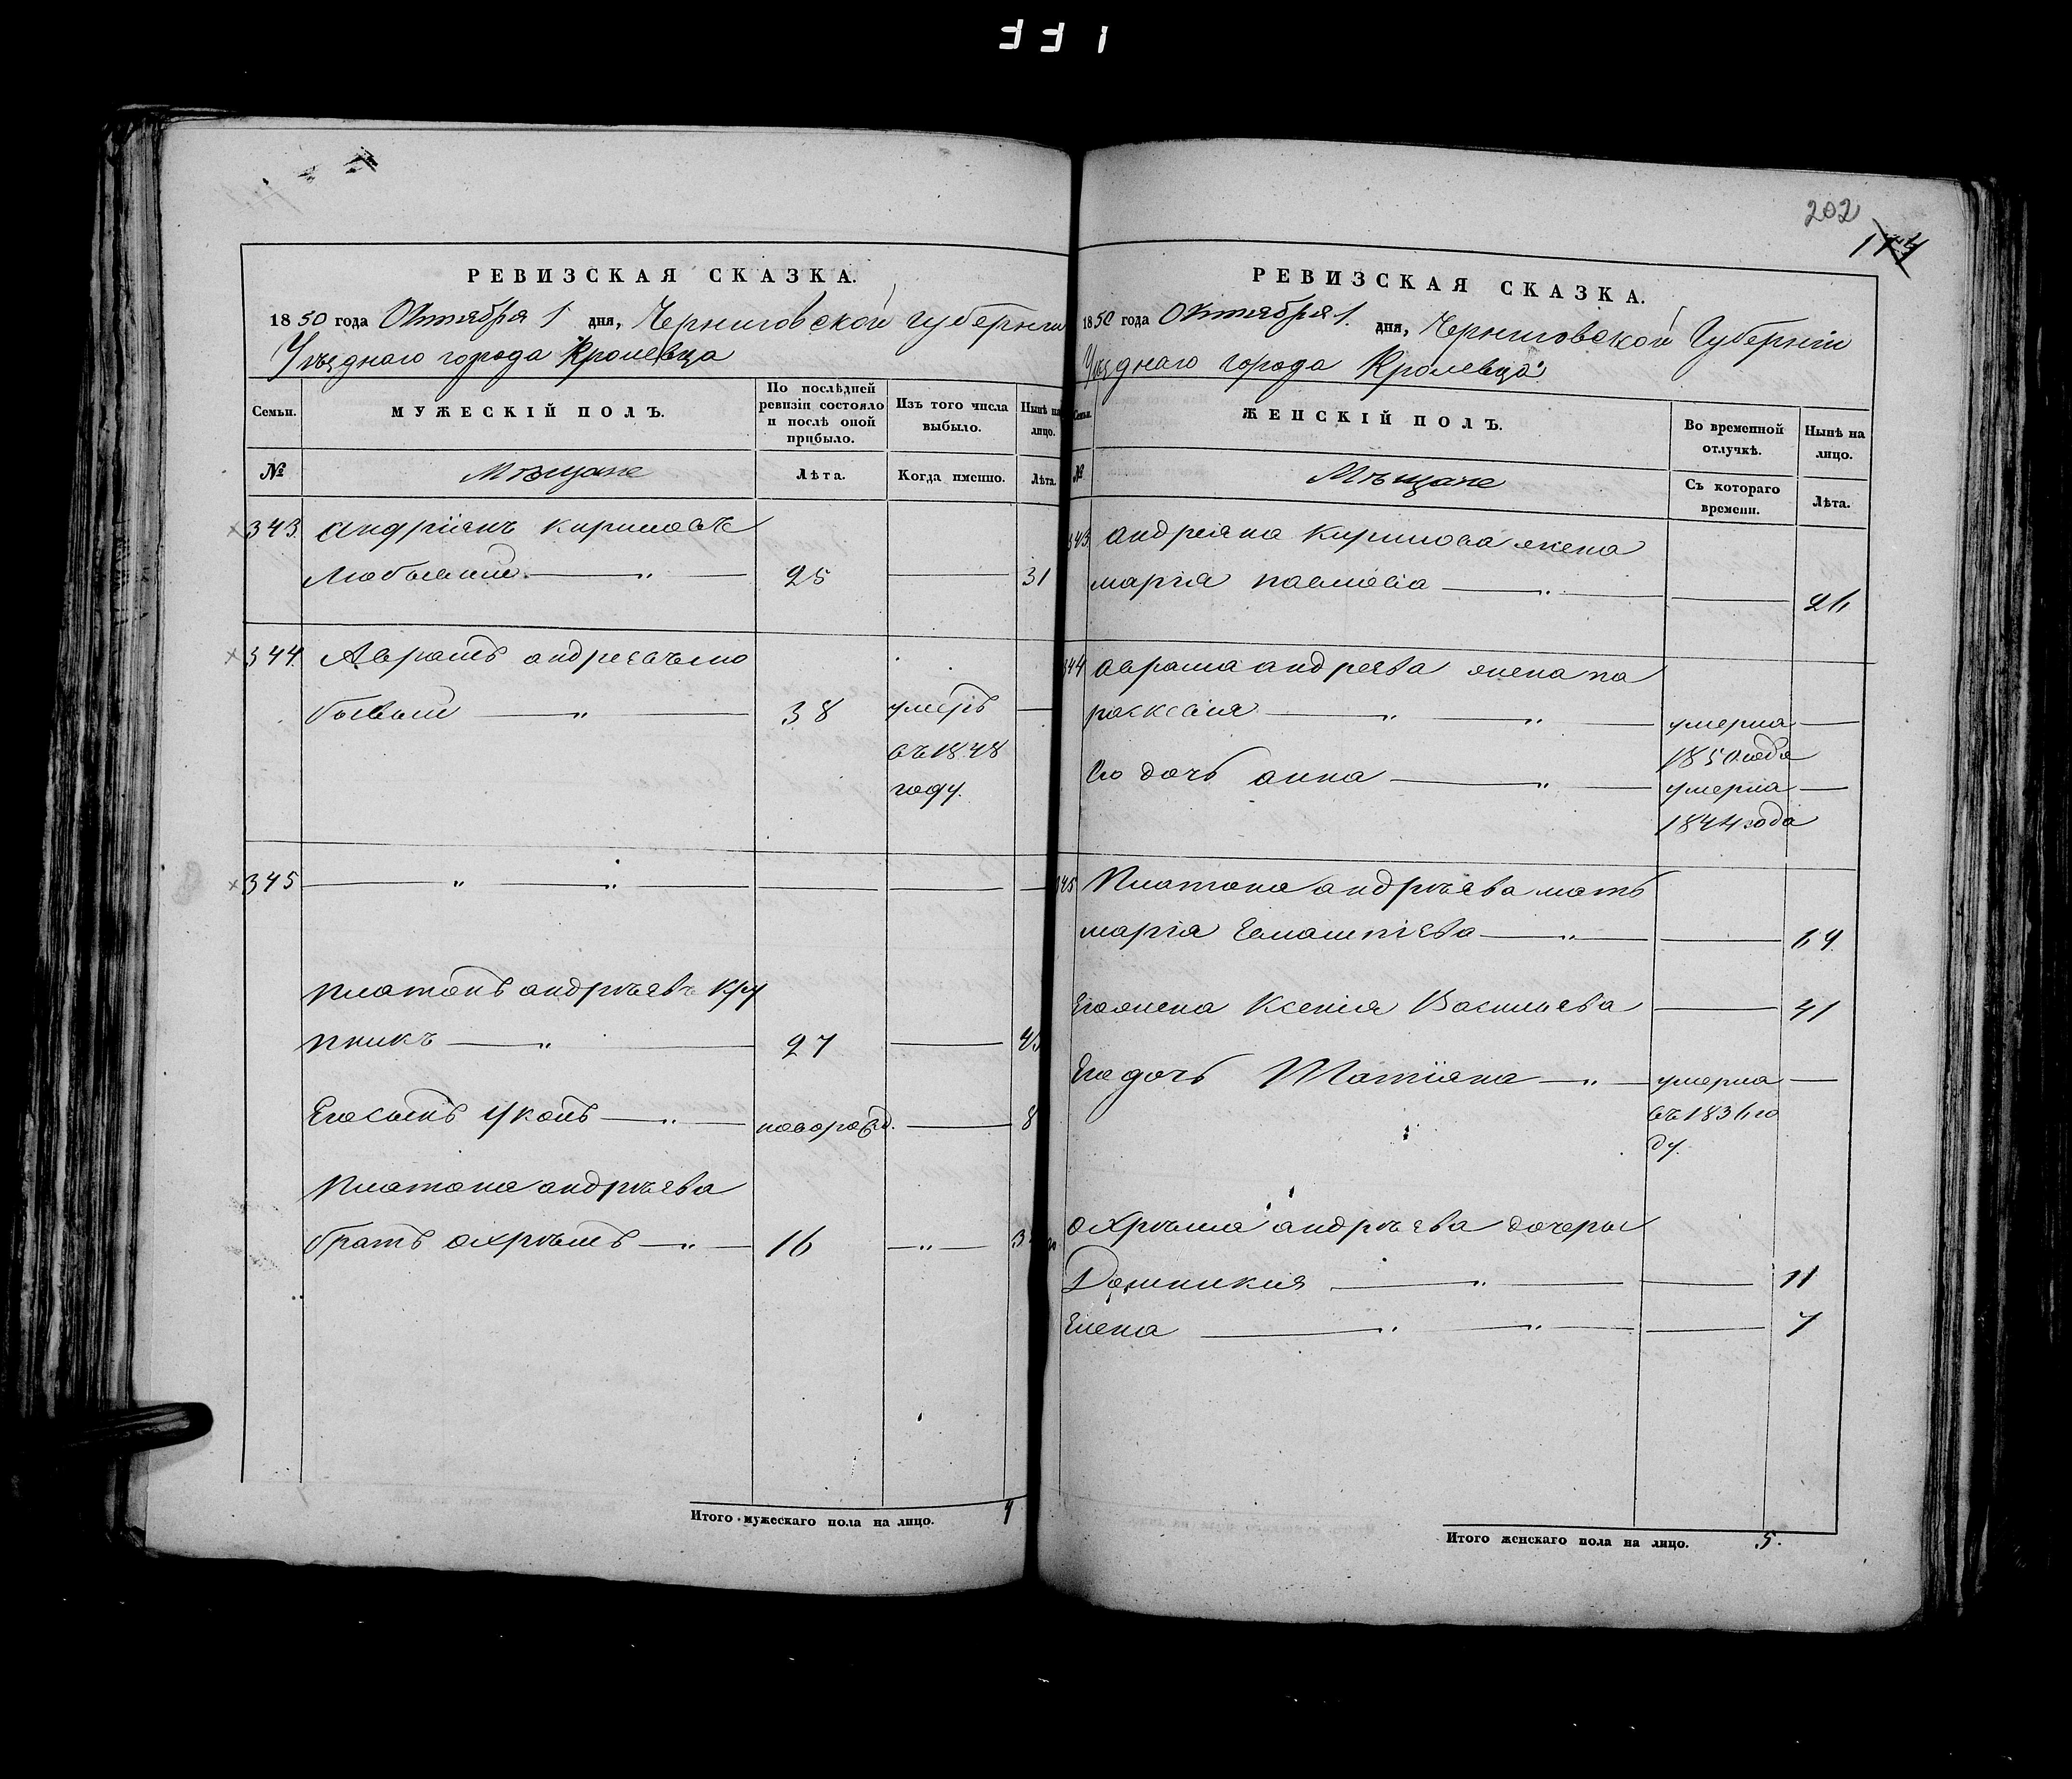 202
РЕВИЗСКАЯ СКАЗКА.
1850 года Октября 1 дня, Черниговской губернiи
Уѣзднаго города Кролевца
Семьи.
МУЖЕСКIЙ ПОЛЪ.
По послѣдней ревизiи состояло и послѣ оной прибыло.
Изъ того числа выбыло.
Нынѣ на лицо.
№
Мѣщане
Лѣта.
Когда именно.
Лѣта.
343. Андрiянъ Кириловъ
25 31
344 Аврамъ андреевъ
38 умеръ
въ 1848
году.
345
Платонъ андрѣевъ Кру
пникъ 27
Его сынъ новорожд. 8
Платона андрѣева
братъ охрѣмъ 16
Итого мужескаго пола на лицо. 4
РЕВИЗСКАЯ СКАЗКА.
1850 года Октября 1. дня, Черниговской Губернiи
Уѣзднаго города Кролевца
Семьи.
ЖЕНСКIЙ ПОЛЪ.
Во временной отлучкѣ.
Нынѣ на лицо.
№
Мѣщане
Съ котораго времени.
Лѣта.
343 андреяна Кирилова жена
марiя павлова 26
344 аврама андреева жена па
раскевiя умерла
1850 года
Его дочь анна умерла
1844 года
345 Платона андрѣева мать
марiя 64
Его жена Ксенiя Васильева 41
Его дочь Татiяна умерла
въ 1836 го
ду.
охрѣма андрѣева дочеры
Домникия 11
Елена 7
Итого женскаго пола на лицо. 5.